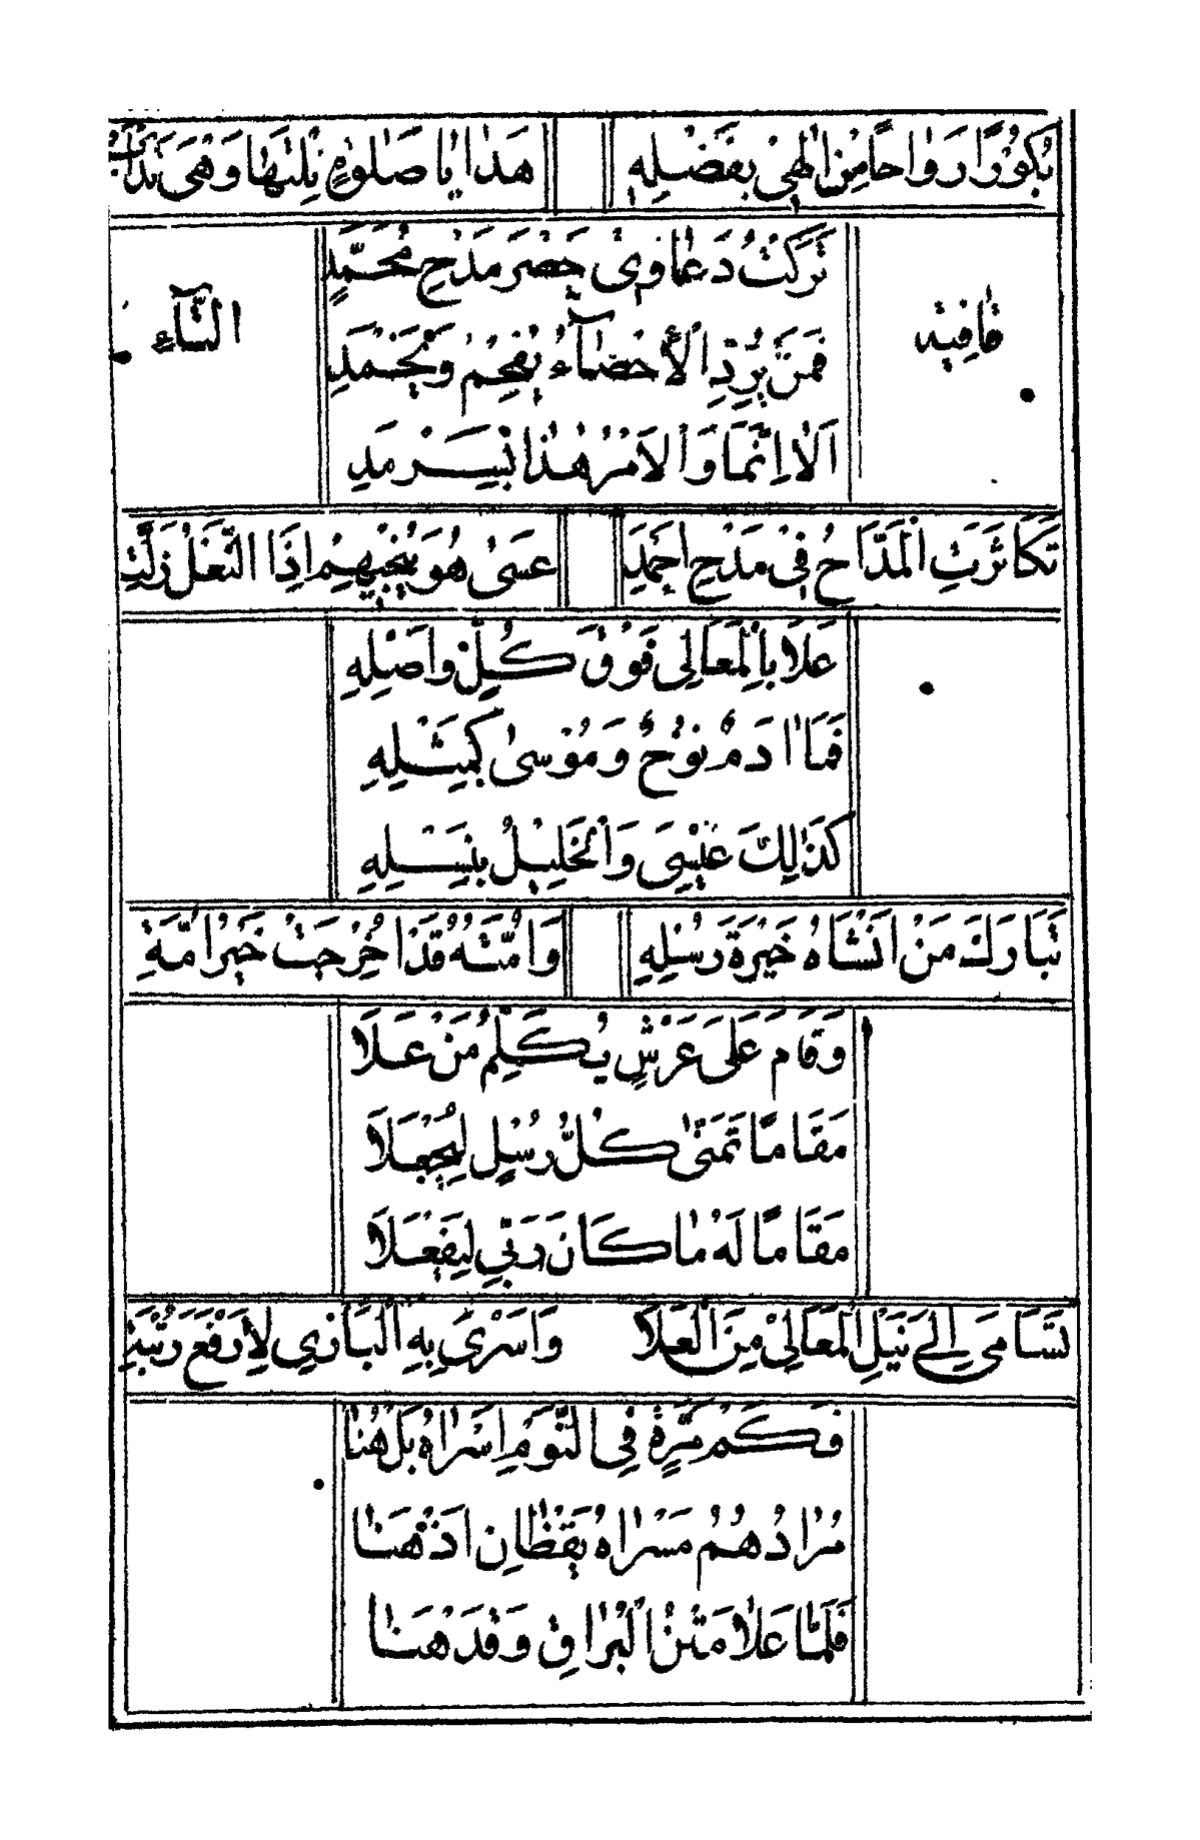 بُكُورًا رَوَاحًا مِنْ اِلٰهِيْ بِفَضْلِهِ هَدَايَا صَلٰوةٍ نِلْتَهَا وَهْيَ
تَرَكْتُ دَعَاوِيْ حَصْرِ مَدْحِ مُحَمَّدٍ
قافية
التَّآءِ
فَمَنْ يُرِدِ الْأَحْضَآءُ يُفْحَمْ وَيَجْمَدِ
اَلَا اِنَّمَا وَالْاَمْرُ هٰذَا بِسَرْمَدِ
تَكَاثَرَتِ الْمَدَّاحُ فِيْ مَدْحِ اَحْمَدِ عَسَىٰ هُوَ يُنْجِيْهِمْ اِذَا النَّعْلُ زَلَّتِ
عَلَا بِالْمَعَالِي فَوْقَ كُلٍّ وَاَصْلِهِ
فَمَا اٰدَمٌ نُوْحٌ وَمُوْسٰى كَمِثْلِهِ
كَذٰلِكَ عِيْسٰى وَالْخَلِيْلُ بِنَسْلِهِ
تَبَارَكَ مَنْ اَنْشَاهُ خَيْرَةَ رُسْلِهِ وَاُمَّتُهُ قَدْ اُخْرِجَتْ خَيْرَ اُمَّةِ
وَقَامَ عَلَى عَرْشٍ يُكَلِّمُ مَنْ عَلَا
مَقَامًا تَمَنّٰى كُلُّ رُسْلٍ لِيُجْعَلَا
مَقَامًا لَهُ مَا كَانَ رَبِّي لِيَفْعَلَا
تَسَامَى اِلَى نَيْلِ الْمَعَالِيْ مِنَ الْعَلَا وَاَسْرَىٰ بِهِ الْبَارِي لِأَرْفَعِ رُتْبَةِ
فَكَمْ مَرَّةً فِي النَّوْمِ اَسْرَاهُ بَلْ هُنَا
مُرَادُهُمُ مَسْرَاهُ يَقْظَانِ اِذْ هَنَا
فَلَمَّا عَلَا مَتْنَ الْبُرَاقِ وَقَدْ هَنَا